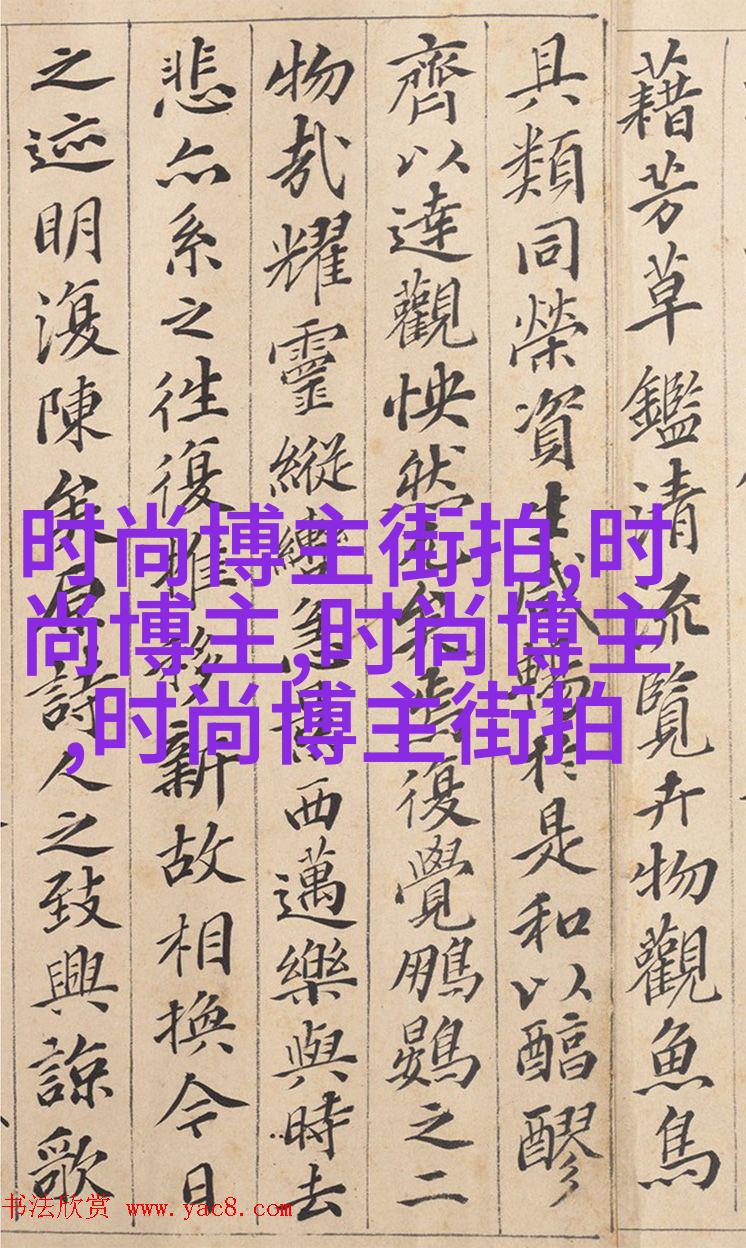 藉芳草鑑清流覽卉物觀魚鳥
具類同榮資生咸暢於是和以醕醪
齊以達觀怏然兀矣焉復覺鵬鷃之二
物哉耀靈縱轡急景西邁樂與時去
悲亦系之往復推移新故相換今日
之迹明復陳矣原詩人之致興諒歌
时尚博主街拍,时
尚博主,时尚博主
,时尚博主街拍
书法欣赏 www.yac8.com